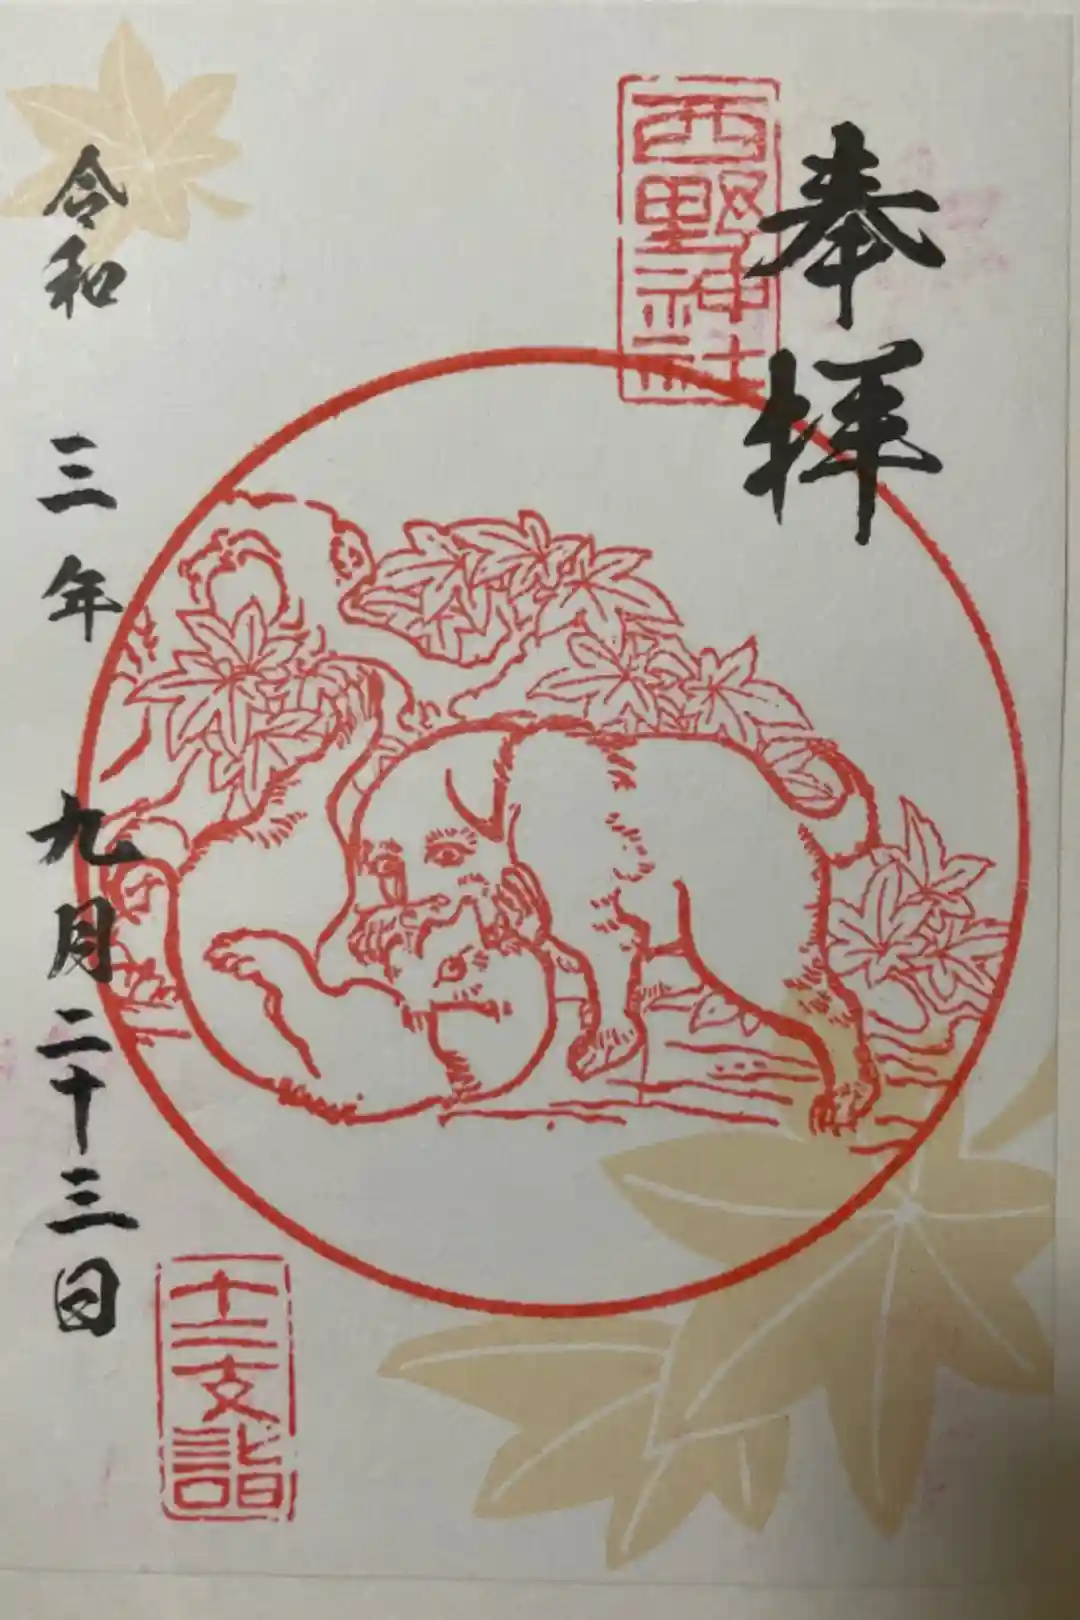 奉拝
西野神社
十二支詣
令和 三年 九月二十三日